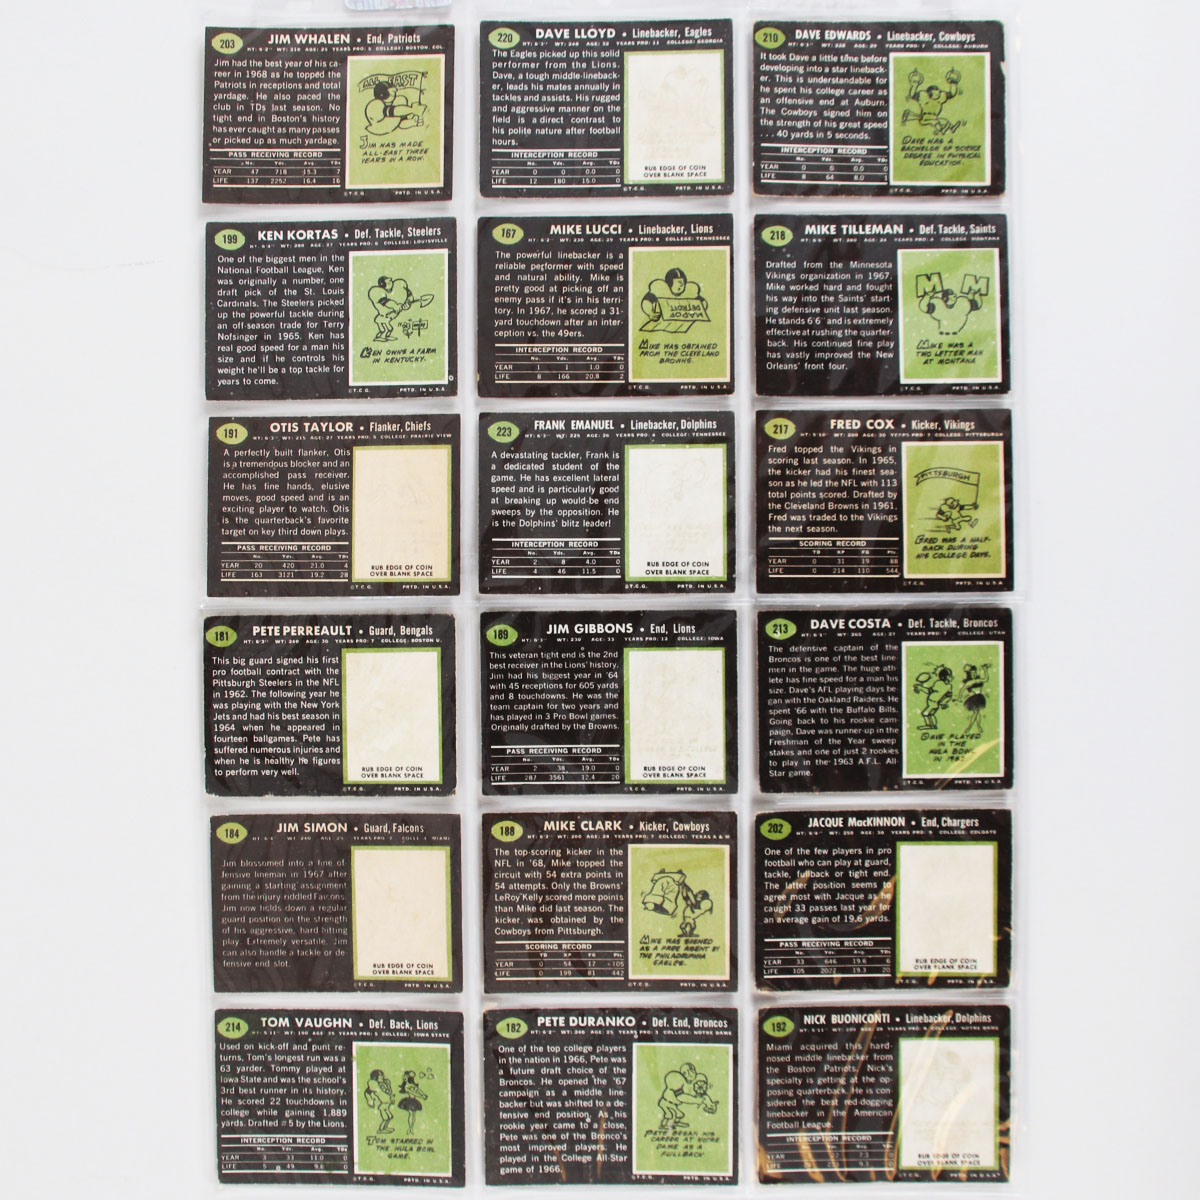 203 JIM WHALEN • End, Patriots
HT: 6'2" WT: 210 AGE: 25 YEARS PRO: 5 COLLEGE: BOSTON COL.
Jim had the best year of his ca-
reer in 1968 as he topped the
Patriots in receptions and total
yardage. He also paced the
club in TDs last season. No
tight end in Boston's history
has ever caught as many passes
or picked up as much yardage.
PASS RECEIVING RECORD
No. Yds. Avg. TDs
YEAR 47 718 15.3 7
LIFE 137 2252 16.4 16
ALL EAST
JIM HAS MADE
ALL-EAST THREE
YEARS IN A ROW.
©T.C.G. PRTD. IN U.S.A.
220 DAVE LLOYD • Linebacker, Eagles
The Eagles picked up this solid
performer from the Lions.
Dave, a tough middle-lineback-
er, leads his mates annually in
tackles and assists. His rugged
and aggressive manner on the
field is a direct contrast to
his polite nature after football
hours.
INTERCEPTION RECORD
No. Yds. Avg. TDs
YEAR 0 0 0.0 0
LIFE 12 180 15.0 0
RUB EDGE OF COIN
OVER BLANK SPACE
©T.C.G. PRTD. IN U.S.A.
210 DAVE EDWARDS • Linebacker, Cowboys
It took Dave a little time before
developing into a star lineback-
er. This is understandable for
he spent his college career as
an offensive end at Auburn.
The Cowboys signed him on
the strength of his great speed
. . . 40 yards in 5 seconds.
INTERCEPTION RECORD
No. Yds. Avg. TDs
YEAR 0 0 0.0 0
LIFE 8 64 8.0 1
DAVE HAS A
BACHELOR OF SCIENCE
DEGREE IN PHYSICAL
EDUCATION.
©T.C.G. PRTD. IN U.S.A.
199 KEN KORTAS • Def. Tackle, Steelers
One of the biggest men in the
National Football League, Ken
was originally a number, one
draft pick of the St. Louis
Cardinals. The Steelers picked
up the powerful tackle during
an off-season trade for Terry
Nofsinger in 1965. Ken has
real good speed for a man his
size and if he controls his
weight he'll be a top tackle for
years to come.
KEN OWNS A FARM
IN KENTUCKY.
©T.C.G. PRTD. IN U.S.A.
167 MIKE LUCCI • Linebacker, Lions
The powerful linebacker is a
reliable performer with speed
and natural ability. Mike is
pretty good at picking off an
enemy pass if it's in his terri-
tory. In 1967, he scored a 31-
yard touchdown after an inter-
ception vs. the 49ers.
INTERCEPTION RECORD
No. Yds. Avg. TDs
YEAR 1 1 1.0 0
LIFE 8 166 20.8 2
MAP OF DETROIT
MIKE WAS OBTAINED
FROM THE CLEVELAND
BROWNS.
©T.C.G. PRTD. IN U.S.A.
218 MIKE TILLEMAN • Def. Tackle, Saints
Drafted from the Minnesota
Vikings organization in 1967,
Mike worked hard and fought
his way into the Saints' start-
ing defensive unit last season.
He stands 6'6" and is extremely
effective at rushing the quarter-
back. His continued fine play
has vastly improved the New
Orleans' front four.
M M
MIKE WAS A
TWO LETTER MAN
AT MONTANA
©T.C.G. PRTD. IN U.S.A.
191 OTIS TAYLOR • Flanker, Chiefs
HT: 6'3" WT: 215 AGE: 27 YEARS PRO: 5 COLLEGE: PRAIRIE VIEW
A perfectly built flanker, Otis
is a tremendous blocker and an
accomplished pass receiver.
He has fine hands, elusive
moves, good speed and is an
exciting player to watch. Otis
is the quarterback's favorite
target on key third down plays.
PASS RECEIVING RECORD
No. Yds. Avg. TDs
YEAR 20 420 21.0 4
LIFE 163 3121 19.2 28
RUB EDGE OF COIN
OVER BLANK SPACE
©T.C.G. PRTD. IN U.S.A.
223 FRANK EMANUEL • Linebacker, Dolphins
A devastating tackler, Frank is
a dedicated student of the
game. He has excellent lateral
speed and is particularly good
at breaking up would-be end
sweeps by the opposition. He
is the Dolphins' blitz leader!
INTERCEPTION RECORD
No. Yds. Avg. TDs
YEAR 2 8 4.0 0
LIFE 4 46 11.5 0
RUB EDGE OF COIN
OVER BLANK SPACE
©T.C.G. PRTD. IN U.S.A.
217 FRED COX • Kicker, Vikings
Fred topped the Vikings in
scoring last season. In 1965,
the kicker had his finest sea-
son as he led the NFL with 113
total points scored. Drafted by
the Cleveland Browns in 1961,
Fred was traded to the Vikings
the next season.
SCORING RECORD
TD XP FG Pts.
YEAR 0 31 19 88
LIFE 0 214 110 544
PITTSBURGH
FRED WAS A HALF-
BACK DURING
HIS COLLEGE DAYS.
©T.C.G. PRTD. IN U.S.A.
181 PETE PERREAULT • Guard, Bengals
This big guard signed his first
pro football contract with the
Pittsburgh Steelers in the NFL
in 1962. The following year he
was playing with the New York
Jets and had his best season in
1964 when he appeared in
fourteen ballgames. Pete has
suffered numerous injuries and
when he is healthy he figures
to perform very well.
RUB EDGE OF COIN
OVER BLANK SPACE
©T.C.G. PRTD. IN U.S.A.
189 JIM GIBBONS • End, Lions
This veteran tight end is the 2nd
best receiver in the Lions' history.
Jim had his biggest year in '64
with 45 receptions for 605 yards
and 8 touchdowns. He was the
team captain for two years and
has played in 3 Pro Bowl games.
Originally drafted by the Browns.
PASS RECEIVING RECORD
No. Yds. Avg. TDs
YEAR 2 38 19.0 0
LIFE 287 3561 12.4 20
RUB EDGE OF COIN
OVER BLANK SPACE
©T.C.G. PRTD. IN U.S.A.
213 DAVE COSTA • Def. Tackle, Broncos
The defensive captain of the
Broncos is one of the best line-
men in the game. The huge ath-
lete has fine speed for a man his
size. Dave's AFL playing days be-
gan with the Oakland Raiders. He
spent '66 with the Buffalo Bills.
Going back to his rookie cam-
paign, Dave was runner-up in the
Freshman of the Year sweep
stakes and one of just 2 rookies
to play in the 1963 A.F.L. All-
Star game.
DAVE PLAYED
IN THE
HULA BOWL
©T.C.G. PRTD. IN U.S.A.
184 JIM SIMON • Guard, Falcons
Jim blossomed into a fine of-
fensive lineman in 1967 after
gaining a starting assignment
from the injury riddled Falcons.
Jim now holds down a regular
guard position on the strength
of his aggressive, hard hitting
play. Extremely versatile, Jim
can also handle a tackle or de-
fensive end slot.
RUB EDGE OF COIN
OVER BLANK SPACE
©T.C.G. PRTD. IN U.S.A.
188 MIKE CLARK • Kicker, Cowboys
The top-scoring kicker in the
NFL in '68, Mike topped the
circuit with 54 extra points in
54 attempts. Only the Browns'
LeRoy Kelly scored more points
than Mike did last season. The
kicker, was obtained by the
Cowboys from Pittsburgh.
SCORING RECORD
TD XP FG Pts.
YEAR 0 54 17 105
LIFE 0 199 81 442
MIKE WAS SIGNED
AS A FREE AGENT BY
THE PHILADELPHIA
EAGLES.
©T.C.G. PRTD. IN U.S.A.
202 JACQUE MacKINNON • End, Chargers
One of the few players in pro
football who can play at guard,
tackle, fullback or tight end.
The latter position seems to
agree most with Jacque as he
caught 33 passes last year for
an average gain of 19.6 yards.
PASS RECEIVING RECORD
No. Yds. Avg. TDs
YEAR 33 646 19.6 6
LIFE 105 2022 19.3 20
RUB EDGE OF COIN
OVER BLANK SPACE
©T.C.G. PRTD. IN U.S.A.
214 TOM VAUGHN • Def. Back, Lions
Used on kick-off and punt re-
turns, Tom's longest run was a
63 yarder. Tommy played at
Iowa State and was the school's
3rd best runner in its history.
He scored 22 touchdowns in
college while gaining 1,889
yards. Drafted #5 by the Lions.
INTERCEPTION RECORD
No. Yds. Avg. TDs
YEAR 3 33 11.0 0
LIFE 5 49 9.8 0
TOM STARRED IN
THE HULA BOWL
GAME.
©T.C.G. PRTD. IN U.S.A.
182 PETE DURANKO • Def. End, Broncos
One of the top college players
in the nation in 1966, Pete was
a future draft choice of the
Broncos. He opened the '67
campaign as a middle line-
backer but was shifted to a de-
fensive end position. As his
rookie year came to a close,
Pete was one of the Bronco's
most improved players. He
played in the College All-Star
game of 1966.
PETE BEGAN HIS
CAREER AT NOTRE
DAME AS A
FULLBACK
©T.C.G. PRTD. IN U.S.A.
192 NICK BUONICONTI • Linebacker, Dolphins
Miami acquired this hard-
nosed middle linebacker from
the Boston Patriots. Nick's
specialty is getting at the op-
posing quarterback. He is con-
sidered the best red-dogging
linebacker in the American
Football League.
INTERCEPTION RECORD
No. Yds. Avg. TDs
YEAR
LIFE
RUB EDGE OF COIN
OVER BLANK SPACE
©T.C.G. PRTD. IN U.S.A.